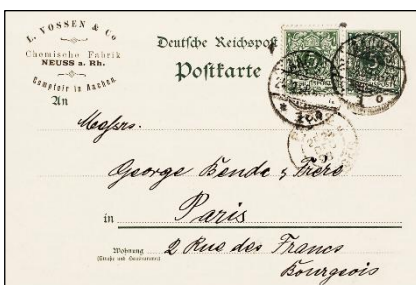 L. VOSSEN & Co
Chemische Fabrik
NEUSS a. Rh.
Comptoir in Aachen.
Deutsche Reichspost
Postkarte
An
Messrs.
George Bende & Frère
in Paris
Wohnung
(Straße und Hausnummer)
2 Rue des Francs
Bourgeois